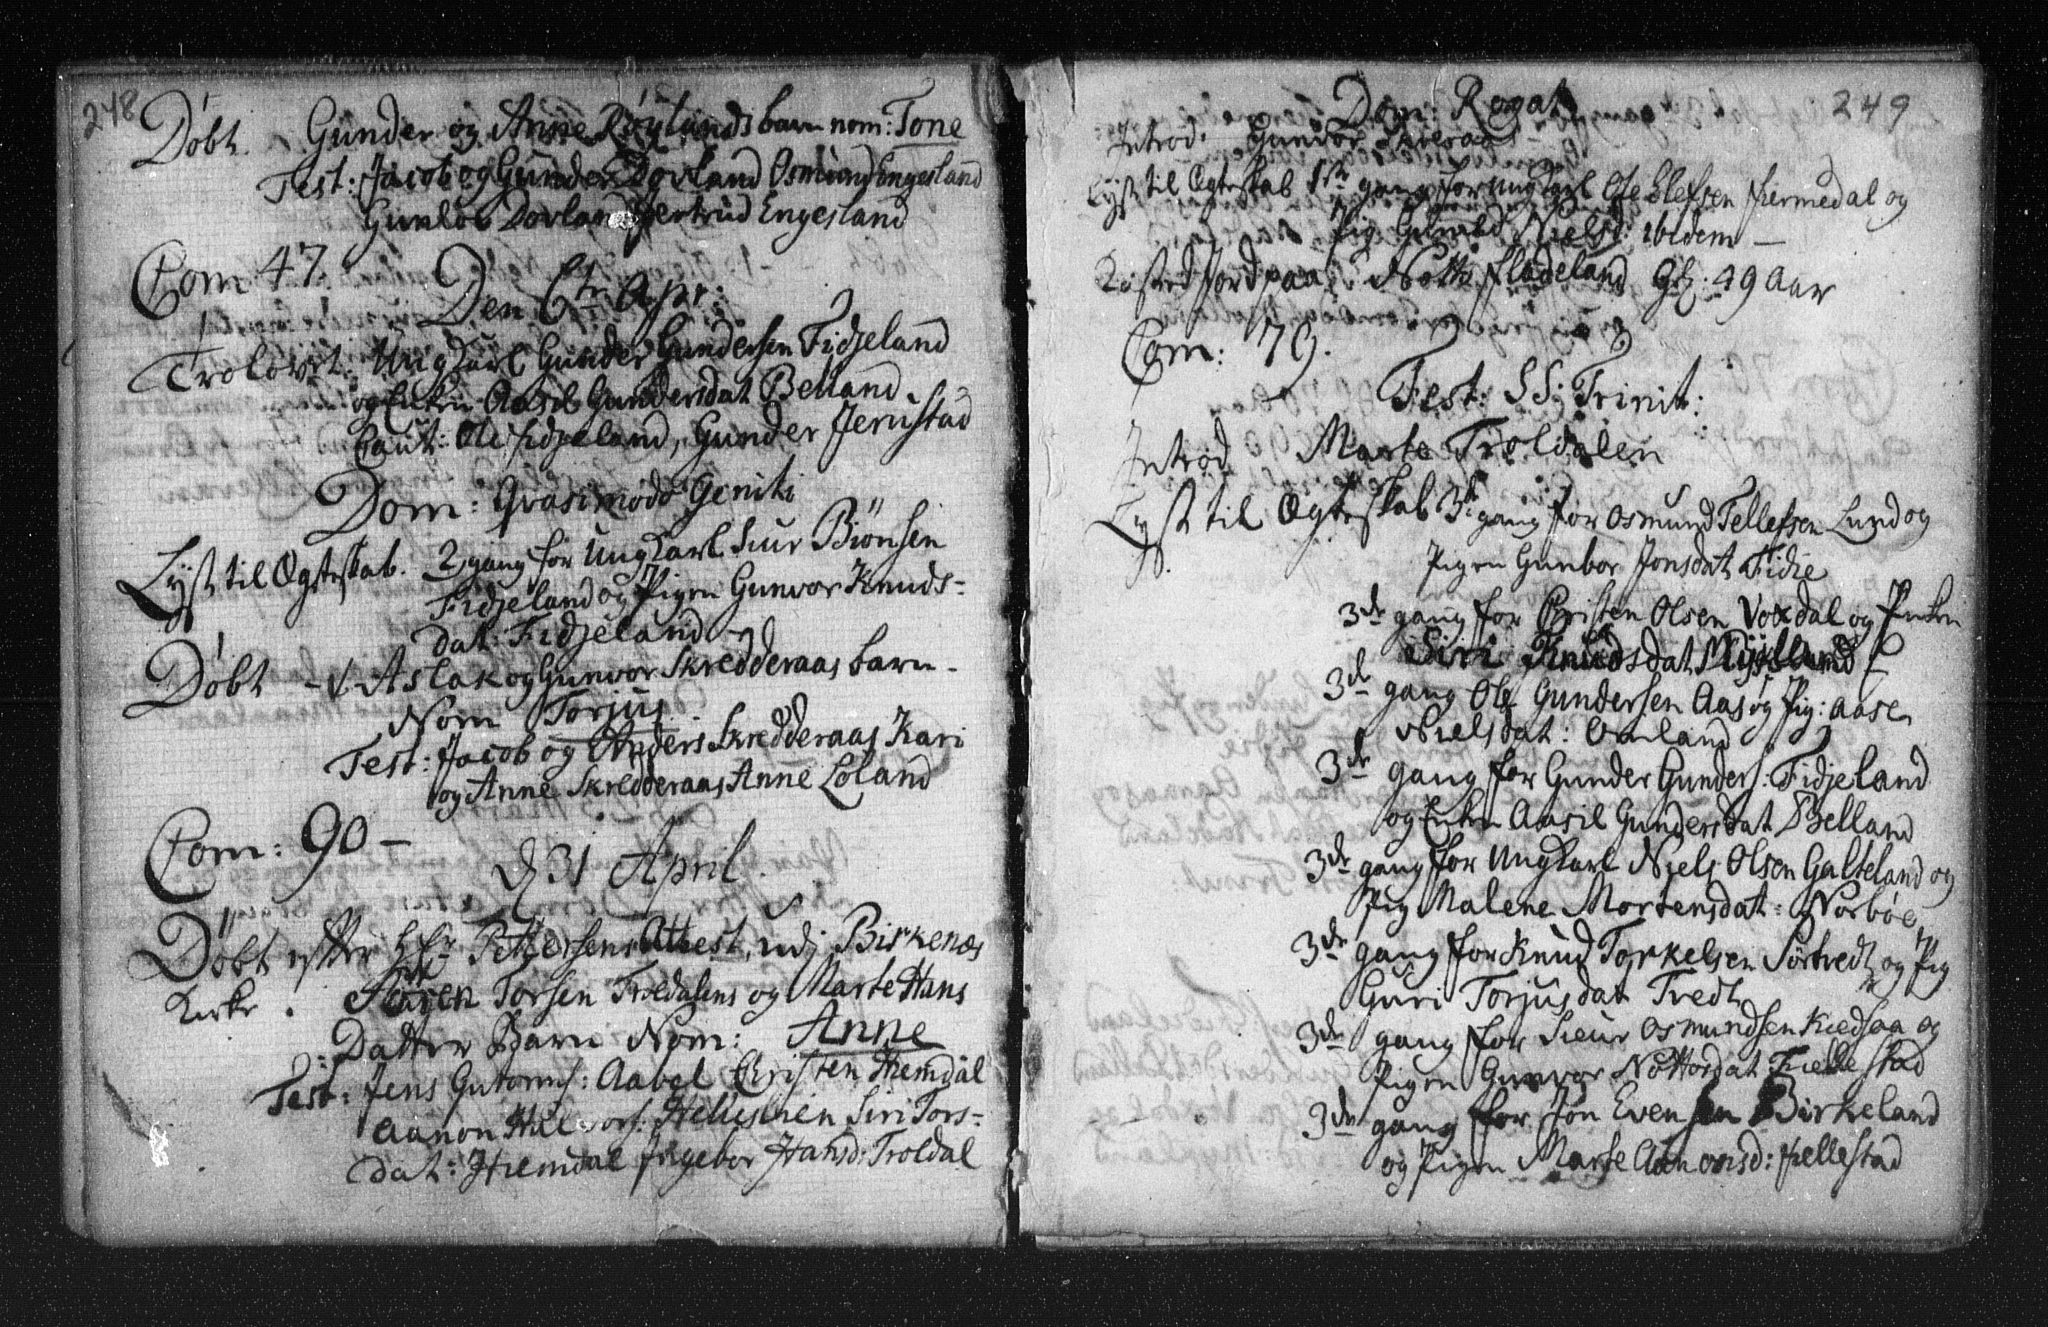 248
Døbt. Gunder og Anne Røylands barn nom: Tone
Test: Jacob og Gunder Dovland Osmund Engesland
Gunlob Dovland Gertrud Engesland
Com 47
Den 6te Apr:
Trolovet: Ungkarl Gunder Gundersen Fidjeland
og Enken Aasil Gundersdat Belland
Caut: Ole Fidjeland, Gunder Jerustad
Dom: Qvasimodo Geniti
Lyst til Ægteskab. 2 gang for Ungkarl Siur Biønsen
Fidjeland og Pigen Gunvor Knuds-
dat: Fidjeland
Døbt Aslak og Gunvor Skredderaas barn
Nom Torjus
Test: Jacob og Anders Skredderaas Kari
og Anne Skredderaas Anne Loland
Com: 90 —
d 31 April.
Døbt efter Hr Pettersens Attest, udj Birkenæs
Kirke. Torsen Troldalens og Marte Hans
Datter Barn Nom: Anne
Test: Jens Gutorms: Aabel Christen Hemdal
Aanon Siri Tors-
dat: Hiemdal Ingebor Hansd: Troldal
249
Dom: Rogat
Introd. Gunvor
Lyst til Ægteskab 1ste gang for Ungkarl Ole Elefsen Hermedal og
Pig Nielsd: ibidem —
Kasted Jord paa Fladeland Gl: 49 Aar
Com: 79.
Fest: SS: Trinit:
Introd Marte Troldalen
Lyst til Ægteskab 3de gang for Osmund Tellefsen Lund og
Pigen Gunbor Jonsdat Fidie
3de gang for Cristen Olsen Voxdal og Enken
Siri Knudsdat Mykland
3de gang Ole Gundersen Aas og Pig: Aase
Nielsdat: Omland
3de gang for Gunder Gunders: Fidjeland
og Enken Aasil Gundersdat Belland
3de gang for Ungkarl Niels Olsen Galteland og
Pig Malene Mortensdat: Norbøe
3de gang for Knud Torkelsen Sørtvedt og Pig
Guri Torjusdat Tvedt
3de gang for Sieur Osmundsen Kiedsaa og
Pigen Gunvor Nottordat Fiellestad
3de gang for Jon Evensen Birkeland
og Pigen Marte Aanonsd: Fiellestad